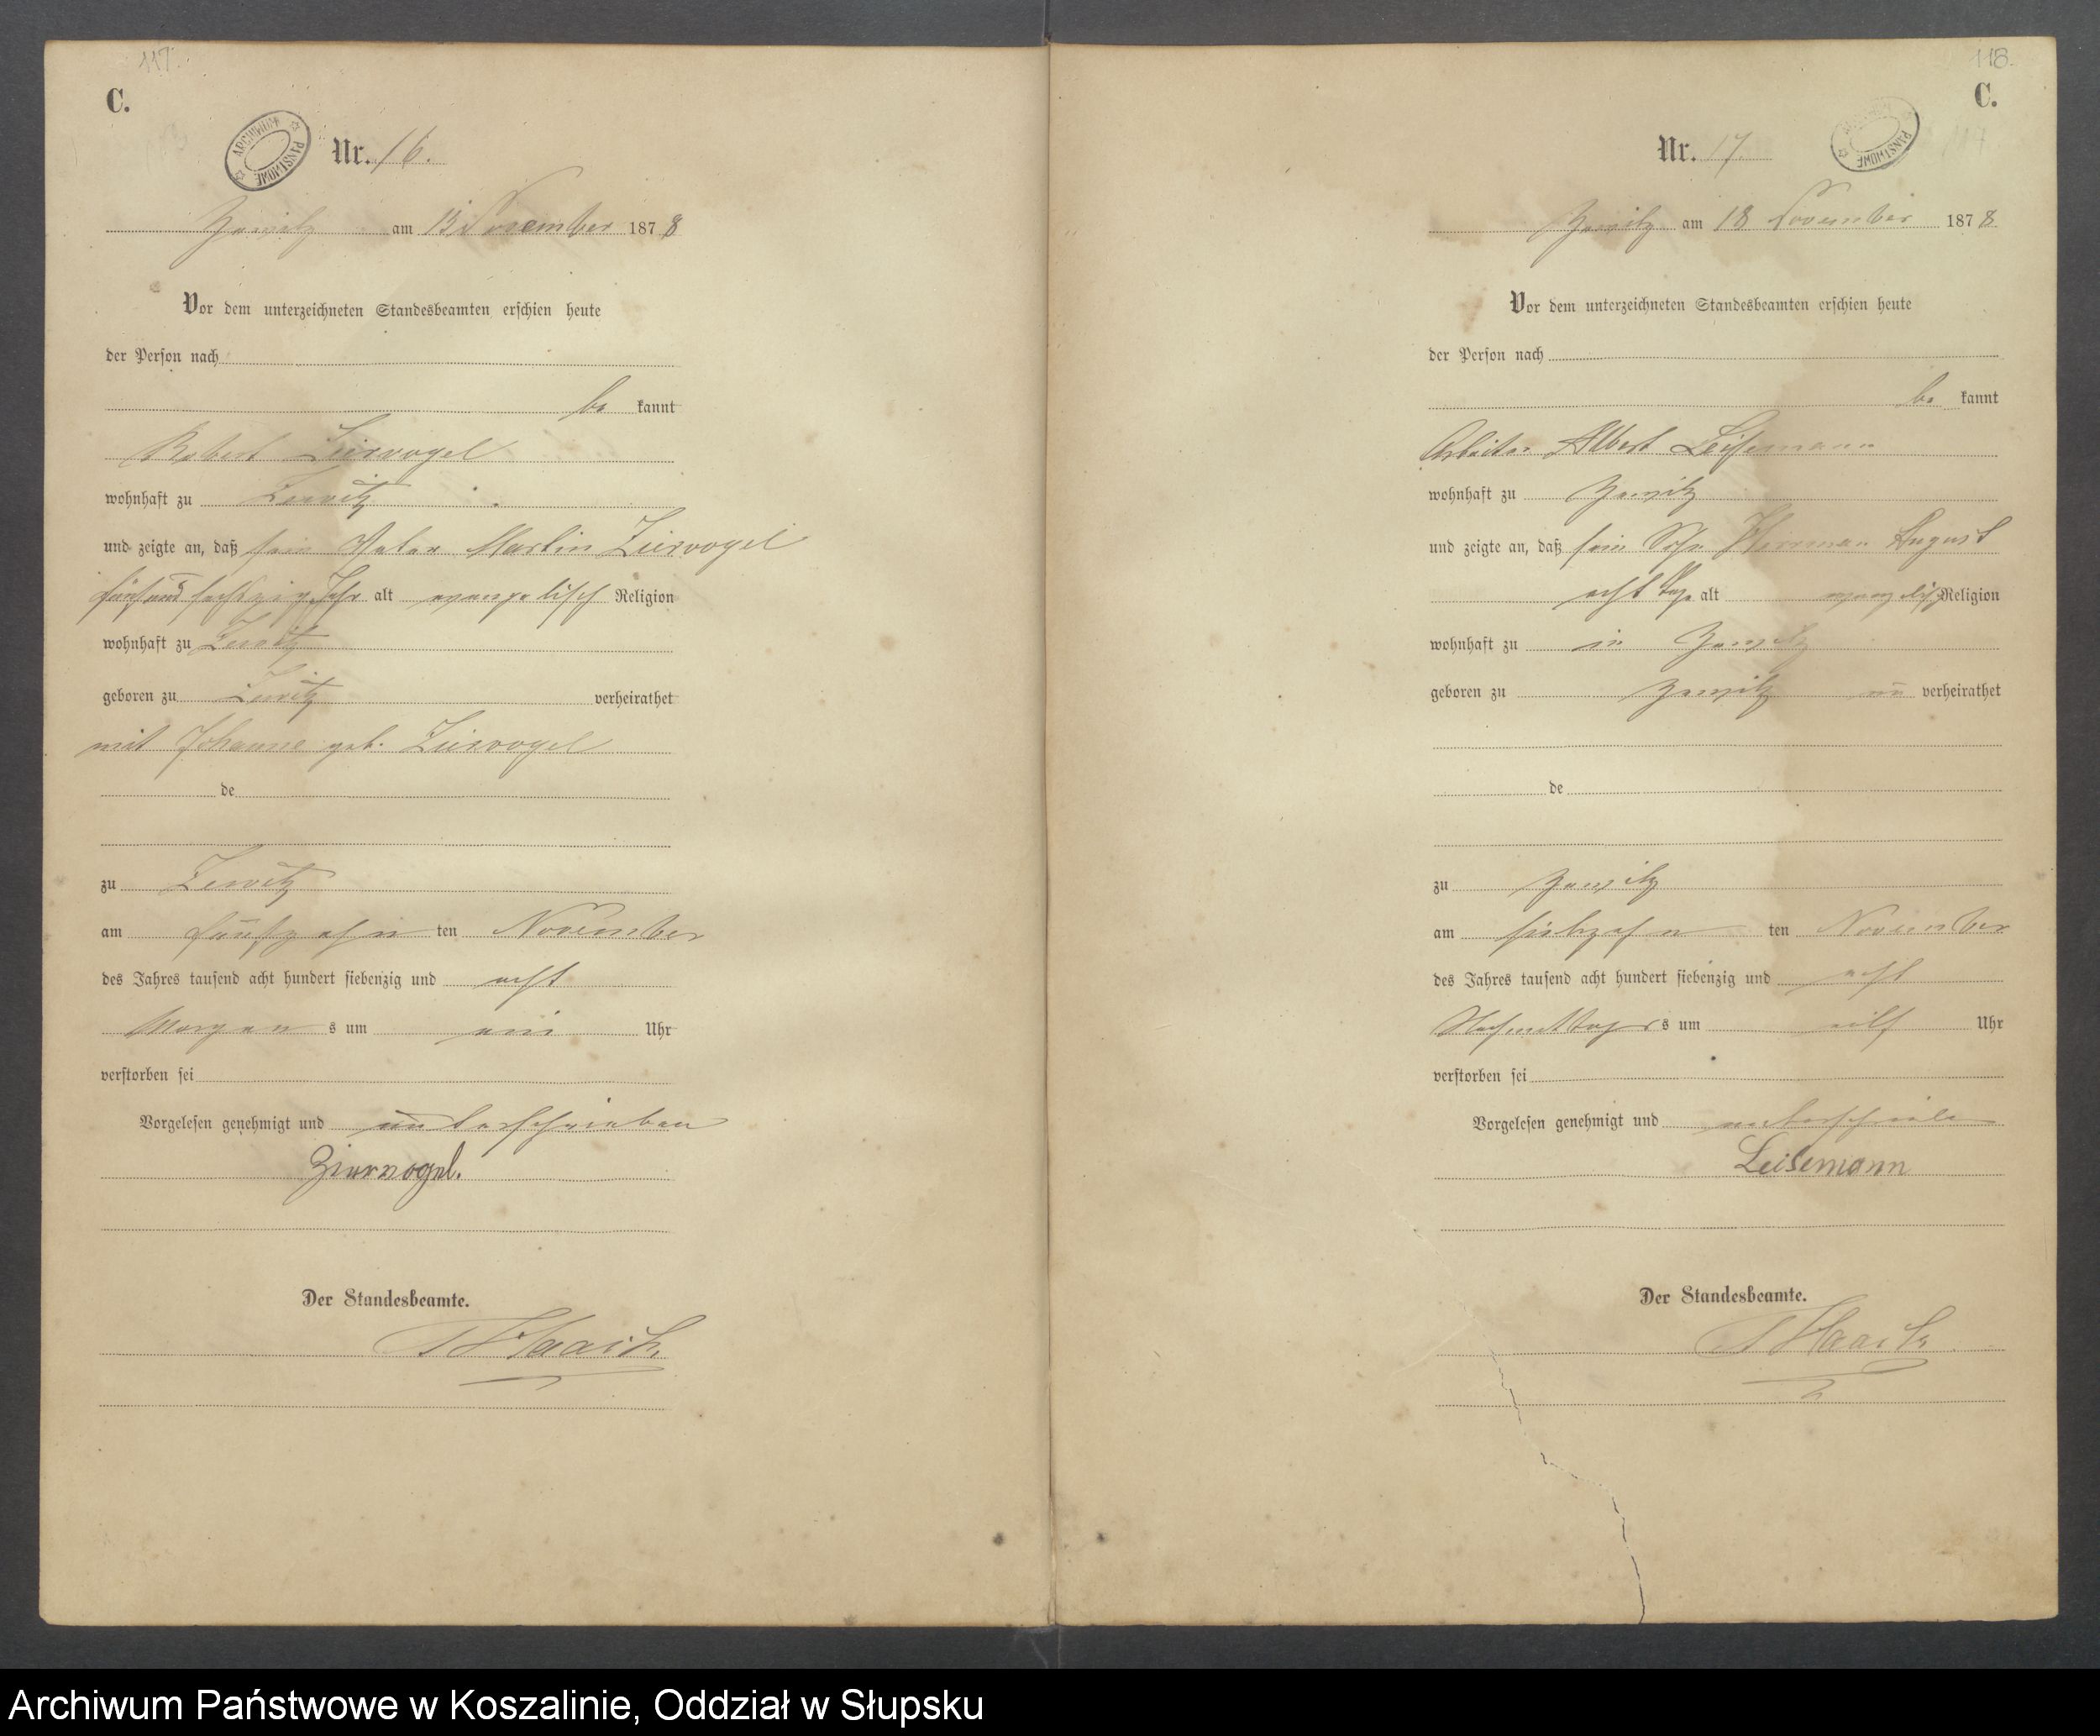 117.
C.
ARCHIWUM PAŃSTWOWE
Nr. 16.
Zewitz am 15 November 1878
Vor dem unterzeichneten Standesbeamten erschien heute
der Person nach
be kannt
Robert Ziervogel
wohnhaft zu Zewitz
und zeigte an, daß sein Vater Martin Ziervogel
fünf und sechszig Jahr alt evangelisch Religion
wohnhaft zu Zewitz
geboren zu Zewitz verheirathet
mit Johanne geb. Ziervogel
de
zu Zewitz
am fünfzehn ten November
des Jahres tausend acht hundert siebenzig und acht
Morgen s um ein Uhr
verstorben sei
Vorgelesen genehmigt und unterschrieben
Ziervogel.
Der Standesbeamte.
Haack
118.
C.
ARCHIWUM PAŃSTWOWE
117
Nr. 17.
Zewitz am 18 November 1878
Vor dem unterzeichneten Standesbeamten erschien heute
der Person nach
be kannt
Arbeiter Albert Leisemann
wohnhaft zu Zewitz
und zeigte an, daß sein Sohn Herrman August
acht Tage alt evangelisch Religion
wohnhaft zu in Zewitz
geboren zu Zewitz un verheirathet
de
zu Zewitz
am siebzehn ten November
des Jahres tausend acht hundert siebenzig und acht
Nachmittags s um eilf Uhr
verstorben sei
Vorgelesen genehmigt und
Leisemann
Der Standesbeamte.
Haack
Archiwum Państwowe w Koszalinie, Oddział w Słupsku